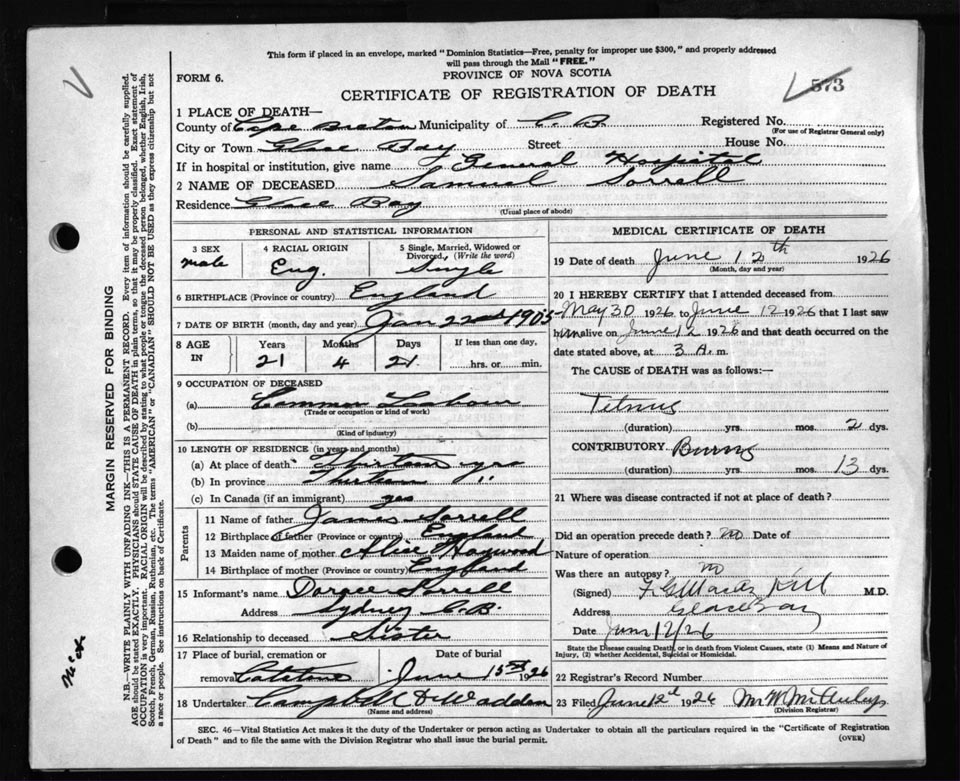 This form if placed in an envelope, marked "Dominion Statistics—Free, penalty for improper use $300," and properly addressed
will pass through the Mail "FREE."
FORM 6.
PROVINCE OF NOVA SCOTIA
573
CERTIFICATE OF REGISTRATION OF DEATH
1 PLACE OF DEATH—
County of Cape Breton Municipality of C. B. Registered No.
(For use of Registrar General only)
City or Town Glace Bay Street House No.
If in hospital or institution, give name General Hospital
2 NAME OF DECEASED Samuel Sorrell
Residence Glace Bay
(Usual place of abode)
PERSONAL AND STATISTICAL INFORMATION
3 SEX 4 RACIAL ORIGIN 5 Single, Married, Widowed or
Divorced, (Write the word)
male Eng. Single
6 BIRTHPLACE (Province or country) England
7 DATE OF BIRTH (month, day and year) Jan 22nd 1905
8 AGE IN Years Months Days If less than one day,
21 4 21 hrs. or min.
9 OCCUPATION OF DECEASED
(a) Common Labour
(Trade or occupation or kind of work)
(b)
(Kind of industry)
10 LENGTH OF RESIDENCE (in years and months)
(a) At place of death Thirteen yrs
(b) In province Thirteen "
(c) In Canada (if an immigrant) yes
Parents
11 Name of father James Sorrell
12 Birthplace of father (Province or country) England
13 Maiden name of mother Alice Haywood
14 Birthplace of mother (Province or country) England
15 Informant's name Sorrell
Address Sydney C.B.
16 Relationship to deceased Sister
17 Place of burial, cremation or Date of burial
removal June 15th 1926
18 Undertaker Campbell & Wadden
(Name and address)
MEDICAL CERTIFICATE OF DEATH
19 Date of death June 12th 1926
(Month, day and year)
20 I HEREBY CERTIFY that I attended deceased from
May 30 1926 to June 12 1926 that I last saw
him alive on June 12 1926 and that death occurred on
date stated above, at 3 A. m.
The CAUSE of DEATH was as follows:—
Tetnus
(duration) yrs. mos. 2 dys.
CONTRIBUTORY Burns
(duration) yrs. mos. 13 dys.
21 Where was disease contracted if not at place of death?
Did an operation precede death? no Date of
Nature of operation
Was there an autopsy? no
(Signed) M.D.
Address Glace Bay
Date June 12/26
State the Disease causing Death, or in death from Violent Causes, state (1) Means and Nature of
Injury, (2) whether Accidental, Suicidal or Homicidal.
22 Registrar's Record Number
23 Filed June 12th 1926
(Division Registrar)
SEC. 46—Vital Statistics Act makes it the duty of the Undertaker or person acting as Undertaker to obtain all the particulars required in the "Certificate of Registration
of Death" and to file the same with the Division Registrar who shall issue the burial permit.
(OVER)
MARGIN RESERVED FOR BINDING
N.B.—WRITE PLAINLY WITH UNFADING INK—THIS IS A PERMANENT RECORD. Every item of information should be carefully supplied.
AGE should be stated EXACTLY. PHYSICIANS should STATE CAUSE OF DEATH in plain terms, so that it may be properly classified. Exact statement of
OCCUPATION is very important. RACIAL ORIGIN will be described by stating to what people or tongue the deceased person belonged, whether English, Irish,
Scotch, French, German, Russian, Ruthenian, etc. The terms "AMERICAN" or "CANADIAN" SHOULD NOT BE USED as they express citizenship but not
a race or people. See instructions on back of Certificate.